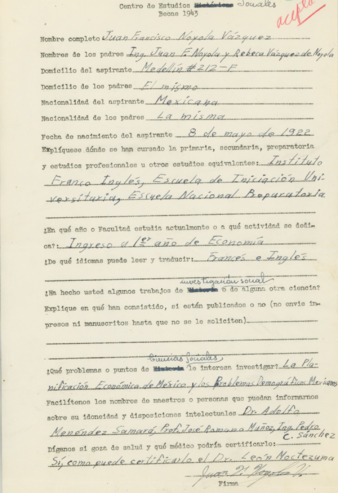 Centro de Estudios Históricos Sociales
Becas 1943
acepta
Nombre completo Juan Francisco Noyola Vázquez
Nombres de los padres Ing. Juan F. Noyola y Rebeca Vázquez de Noyola
Domicilio del aspirante Medellín #212-F
Domicilio de los padres El mismo
Nacionalidad del aspirante Mexicana
Nacionalidad de los padres La misma
Fecha de nacimiento del aspirante 8 de mayo de 1922
Explíquenos dónde se han cursado la primaria, secundaria, preparatoria
y estudios profesionales u otros estudios equivalentes: Instituto
Franco Inglés, Escuela de Iniciación Uni-
versitaria, Escuela Nacional Preparatoria
¿En qué año o Facultad estudia actualmente o a qué actividad se dedi-
ca: Ingreso a 1er año de Economía
¿De qué idiomas puede leer y traducir: Francés e Inglés
investigación social
¿Ha hecho usted algunos trabajos de Historia o de alguna otra ciencia?
Explique en qué han consistido, si están publicados o no (no envíe im-
presos ni manuscritos hasta que no se le soliciten)
Ciencias Sociales
¿Qué problemas o puntos de Historia le interesan investigar: La Pla-
nificación Económica de México y los Problemas Demográficos Mexicanos
Facilítenos los nombres de maestros o personas que puedan informarnos
sobre su idoneidad y disposiciones intelectuales Dr. Adolfo
Menéndez Samará, Prof. José Romano Muñoz, Ing. Pedro
C. Sánchez
Díganos si goza de salud y qué médico podría certificarlo:
Sí, como puede certificarlo el Dr. León Noctezuma
Firma